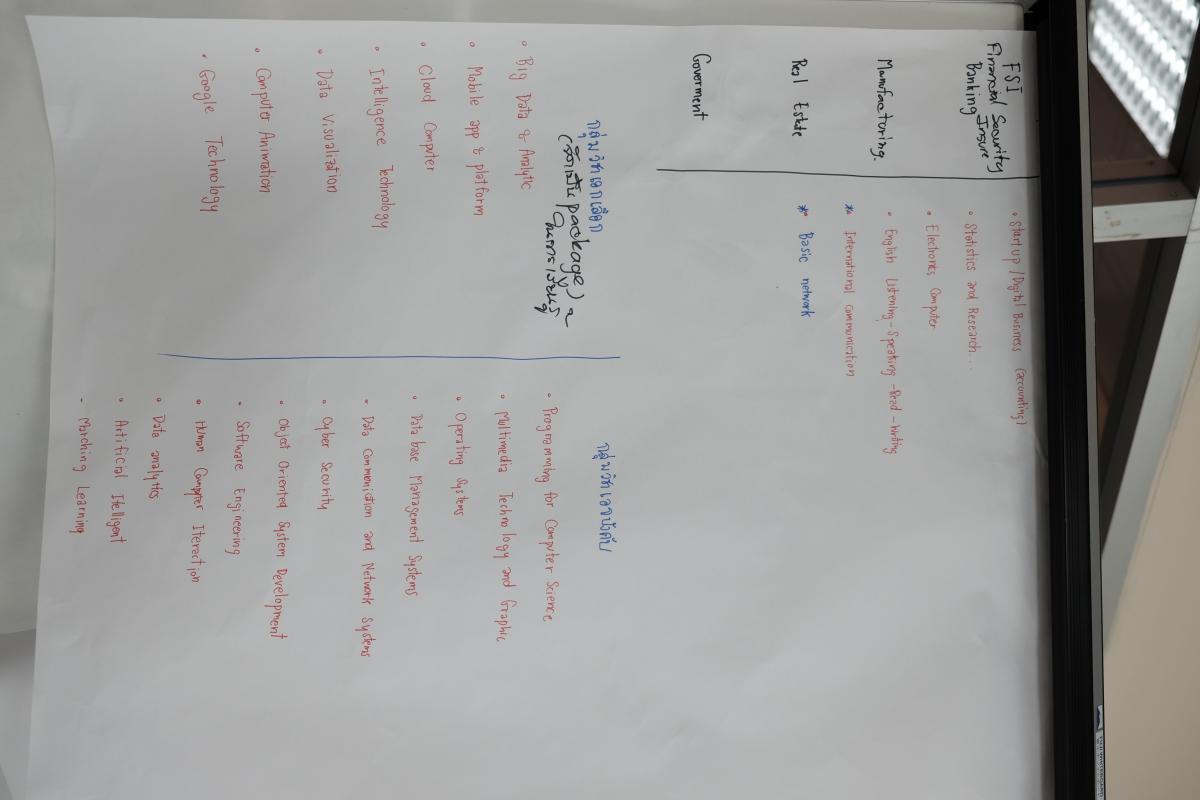 FSI
Financial Security
Banking Insure
Manufactoring.
Real Estate
Goverment
• Start up / Digital Business (accounting)
• Statistics and Research...
• Electronics Computer
• English Listening - Speaking - Read - Writing
* International communication
* Basic network
กลุ่มวิชาเอกเลือก
(จัดเป็น package)
ในการเรียนรู้
• Big Data & Analytic
• Mobile app & platform
• Cloud Computer
• Intelligence Technology
• Data Visualization
• Computer Animation
• Google Technology
กลุ่มวิชาเอกบังคับ
• Programming for Computer Science
• Multimedia Technology and Graphic
• Operating Systems
• Data base Management Systems
• Data Commonication and Network Systems
• Cyber Security
• Object Oriented System Development
• Software Engineering
• Human Computer Iteraction
• Data analytics
• Artificial Itelligent
- Marching Learning